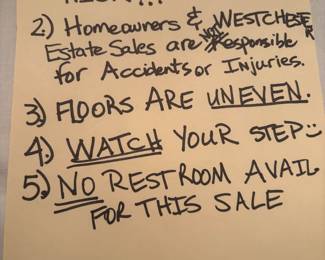 2.) Homeowners & WESTCHESTER
Estate Sales are NOT Responsible
for Accidents or Injuries.
3.) FLOORS ARE UNEVEN.
4.) WATCH YOUR STEP
5.) NO RESTROOM AVAIL
FOR THIS SALE